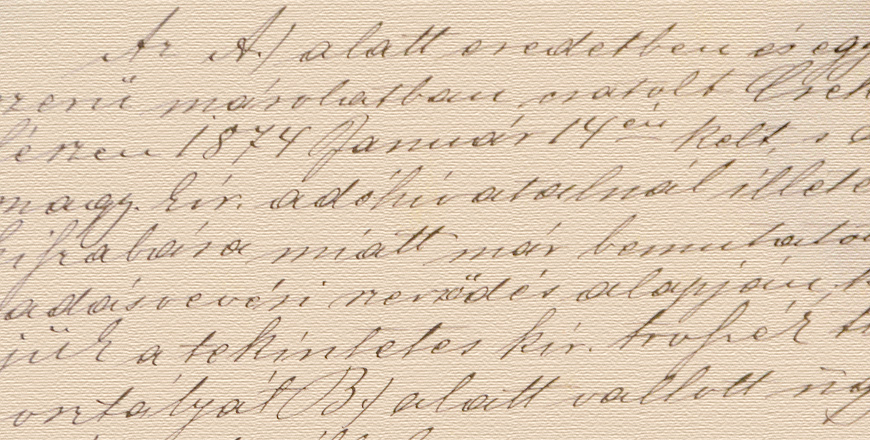 Az A.) alatt eredetben és egy
szerű másolatban csatolt Csek
1874 Január 14 én kelt, s a
magy. kir. adóhivatalnál illeté
kiszabása miatt már bemutatott
adásvevési szerződés alapján
jük a tekintetes kir. trvszék
osztályát B.) alatt vallott üg